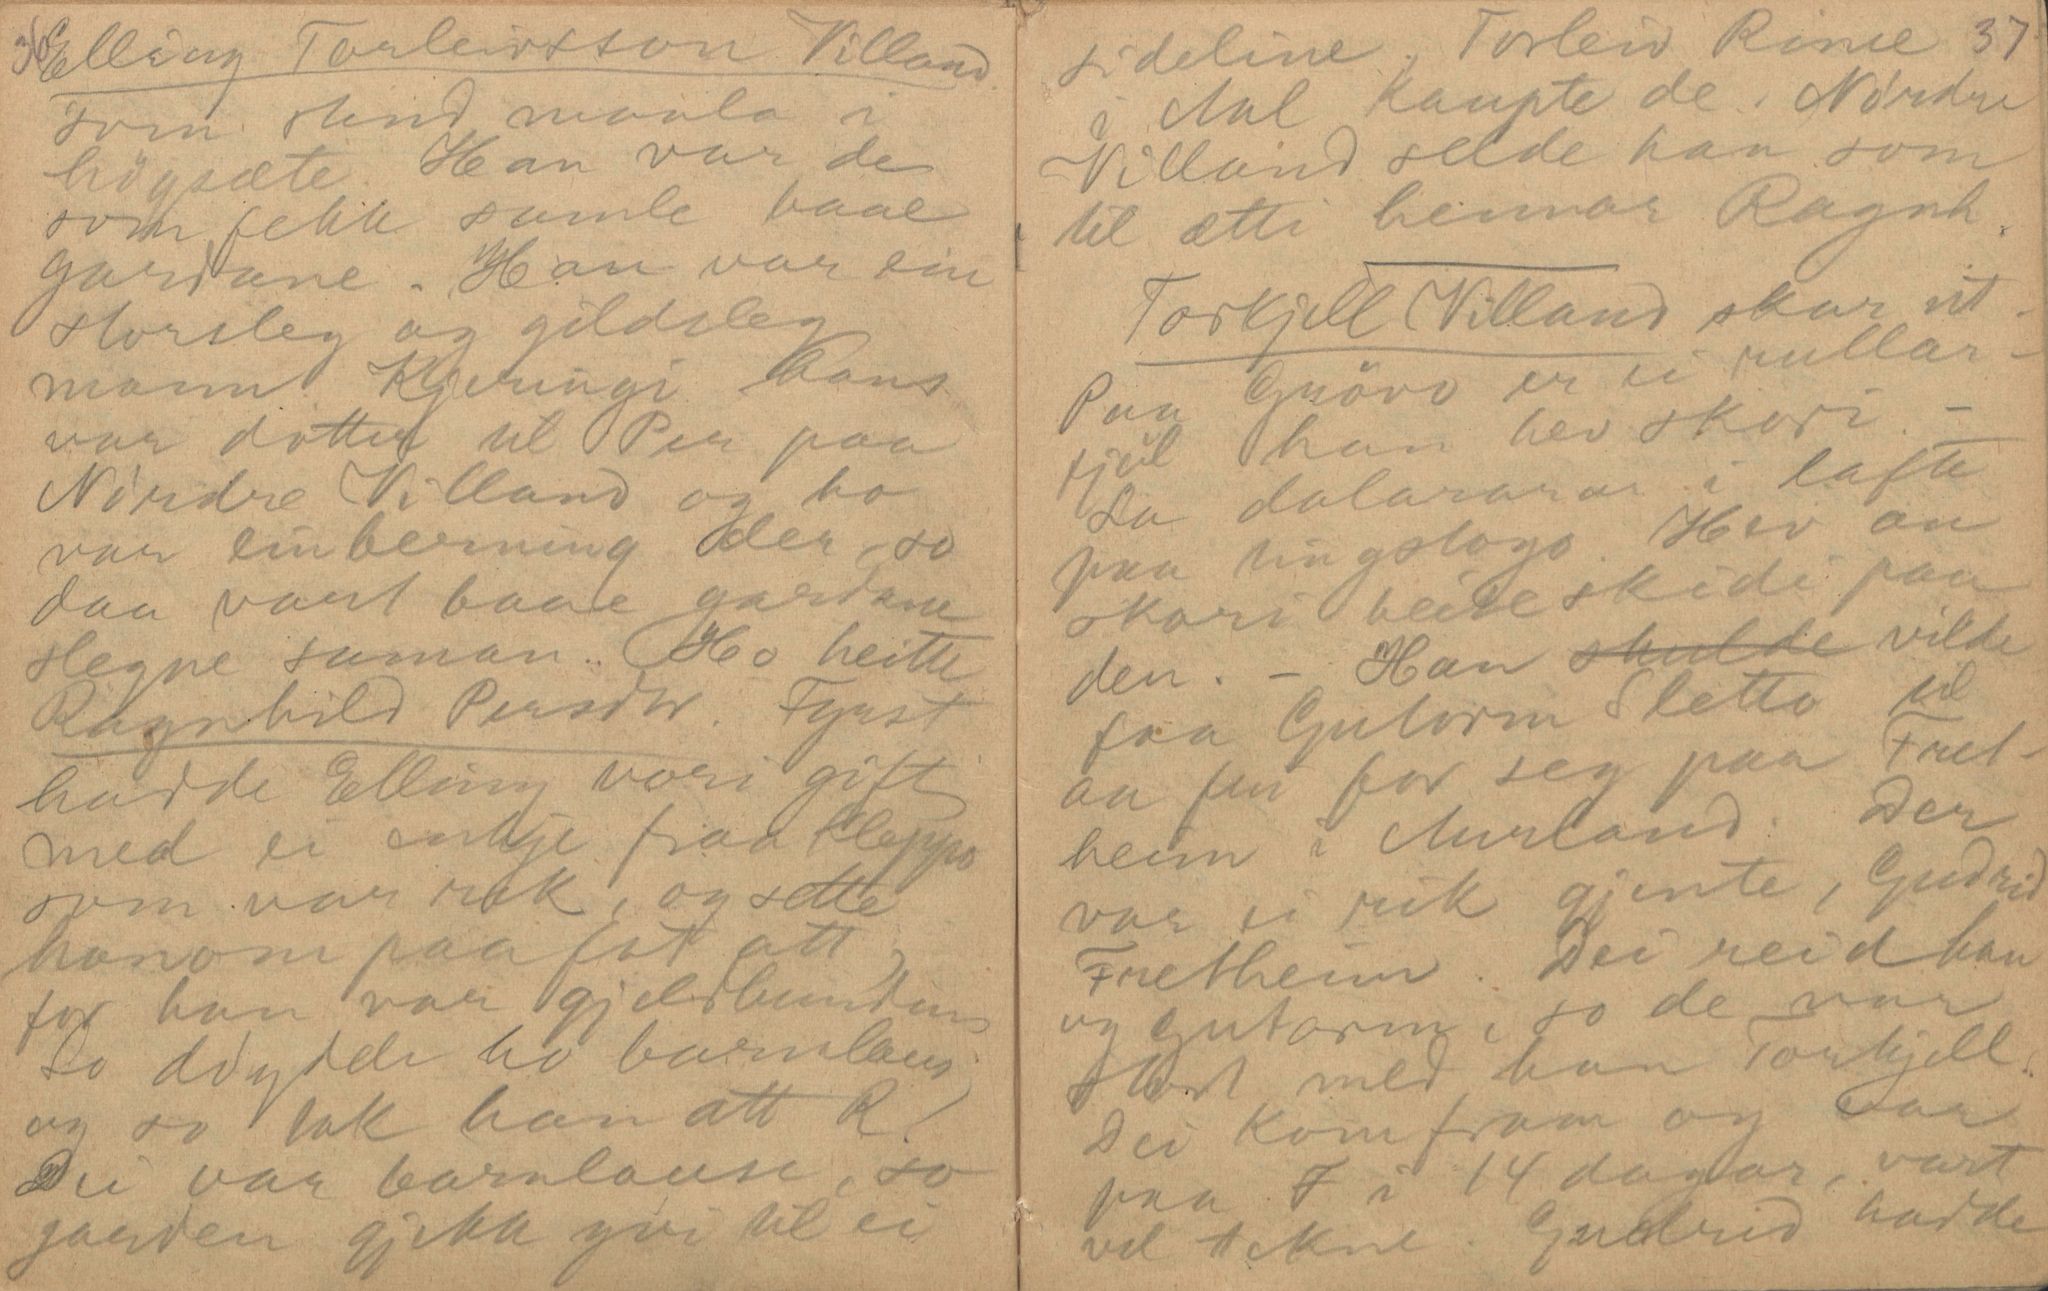 36
Elling Torleivsson Villand
som stend maala i
högsæte. Han var de
som fekk samle baae
gardane. Han var ein
storsleg og gildsleg
mann. Kjeringi hans
var dotter til Per paa
Nördre Villand og ho
var einberning der, so
daa vart baae gardane
slegne saman. Ho heitte
Ragnhild Persdtr. Fyrst
hadde Elling vori gift
med ei enkje fraa Kleppo
som var rik, og sette
honom paa fot att,
for han var gjeldbunden
So döydde ho barnlaus,
og so tok han att R.
Dei var barnlause, so
garden gjekk yvi til ei
37
sideline. Torleiv Rime
i Aal kaupte de. Nördre
Villand selde han som
til ætti hennar Ragnh.
Torkjell Villand skar ut.
Paa Grövo er ei rullar-
fjøl han hev skori. -
So dalararar i lafte
paa tingstogo. Hev an
skori beise skidi paa
den. - Han skulde vilde
faa Gutorm Sletto til
aa fri for seg paa Fret-
heim i Aurland. Der
var ei rik gjente, Gudrid
Fretheim. Dei reid han
og Gutorm, so de var
stort med han Torkjell.
Dei kom fram og var
paa F i 14 dagar, vart
vel tekne. Gudrid hadde